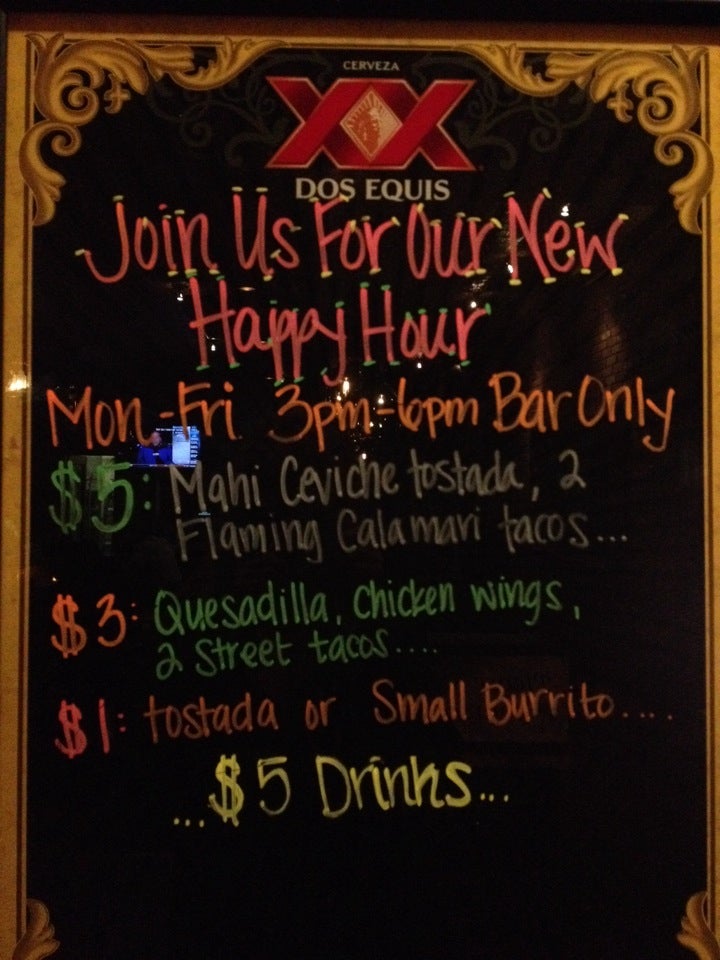 CERVEZA
XX
DOS EQUIS
Join Us For Our New
Happy Hour
Mon-Fri 3pm-6pm Bar Only
$5: Mahi Ceviche tostada, 2
Flaming Calamari tacos...
$3: Quesadilla, Chicken wings,
2 Street tacos....
$1: tostada or Small Burrito....
...$5 Drinks...